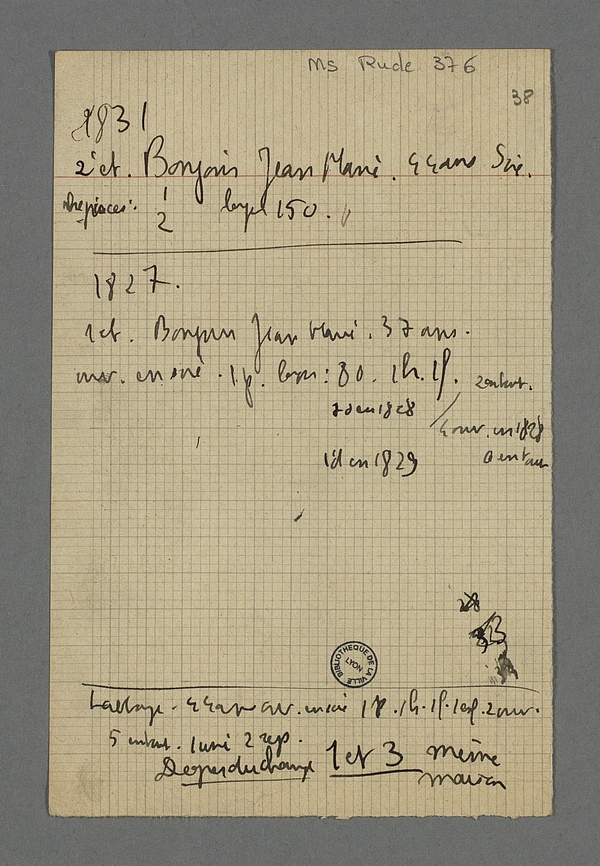 Ms Rude 376
38
1831
2 et. Bonjour Jean Marie. 44 ans Soie.
Dre pièces: 1/2 loyer 150.
1827.
1 et. Bonjour Jean Marie. 37 ans.
ouv. en soie. 1 p. loyer: 80. 1h. 1f. 2 enfant.
en 1828
4 ouv. en 1828
id en 1829
0 enfant
28
33
BIBLIOTHEQUE DE LA VILLE LYON
44 ans ouv. en soie 1p. 1h. 1f. 2 ouv.
5 enfant. 1 2
1 et 3 même
maison